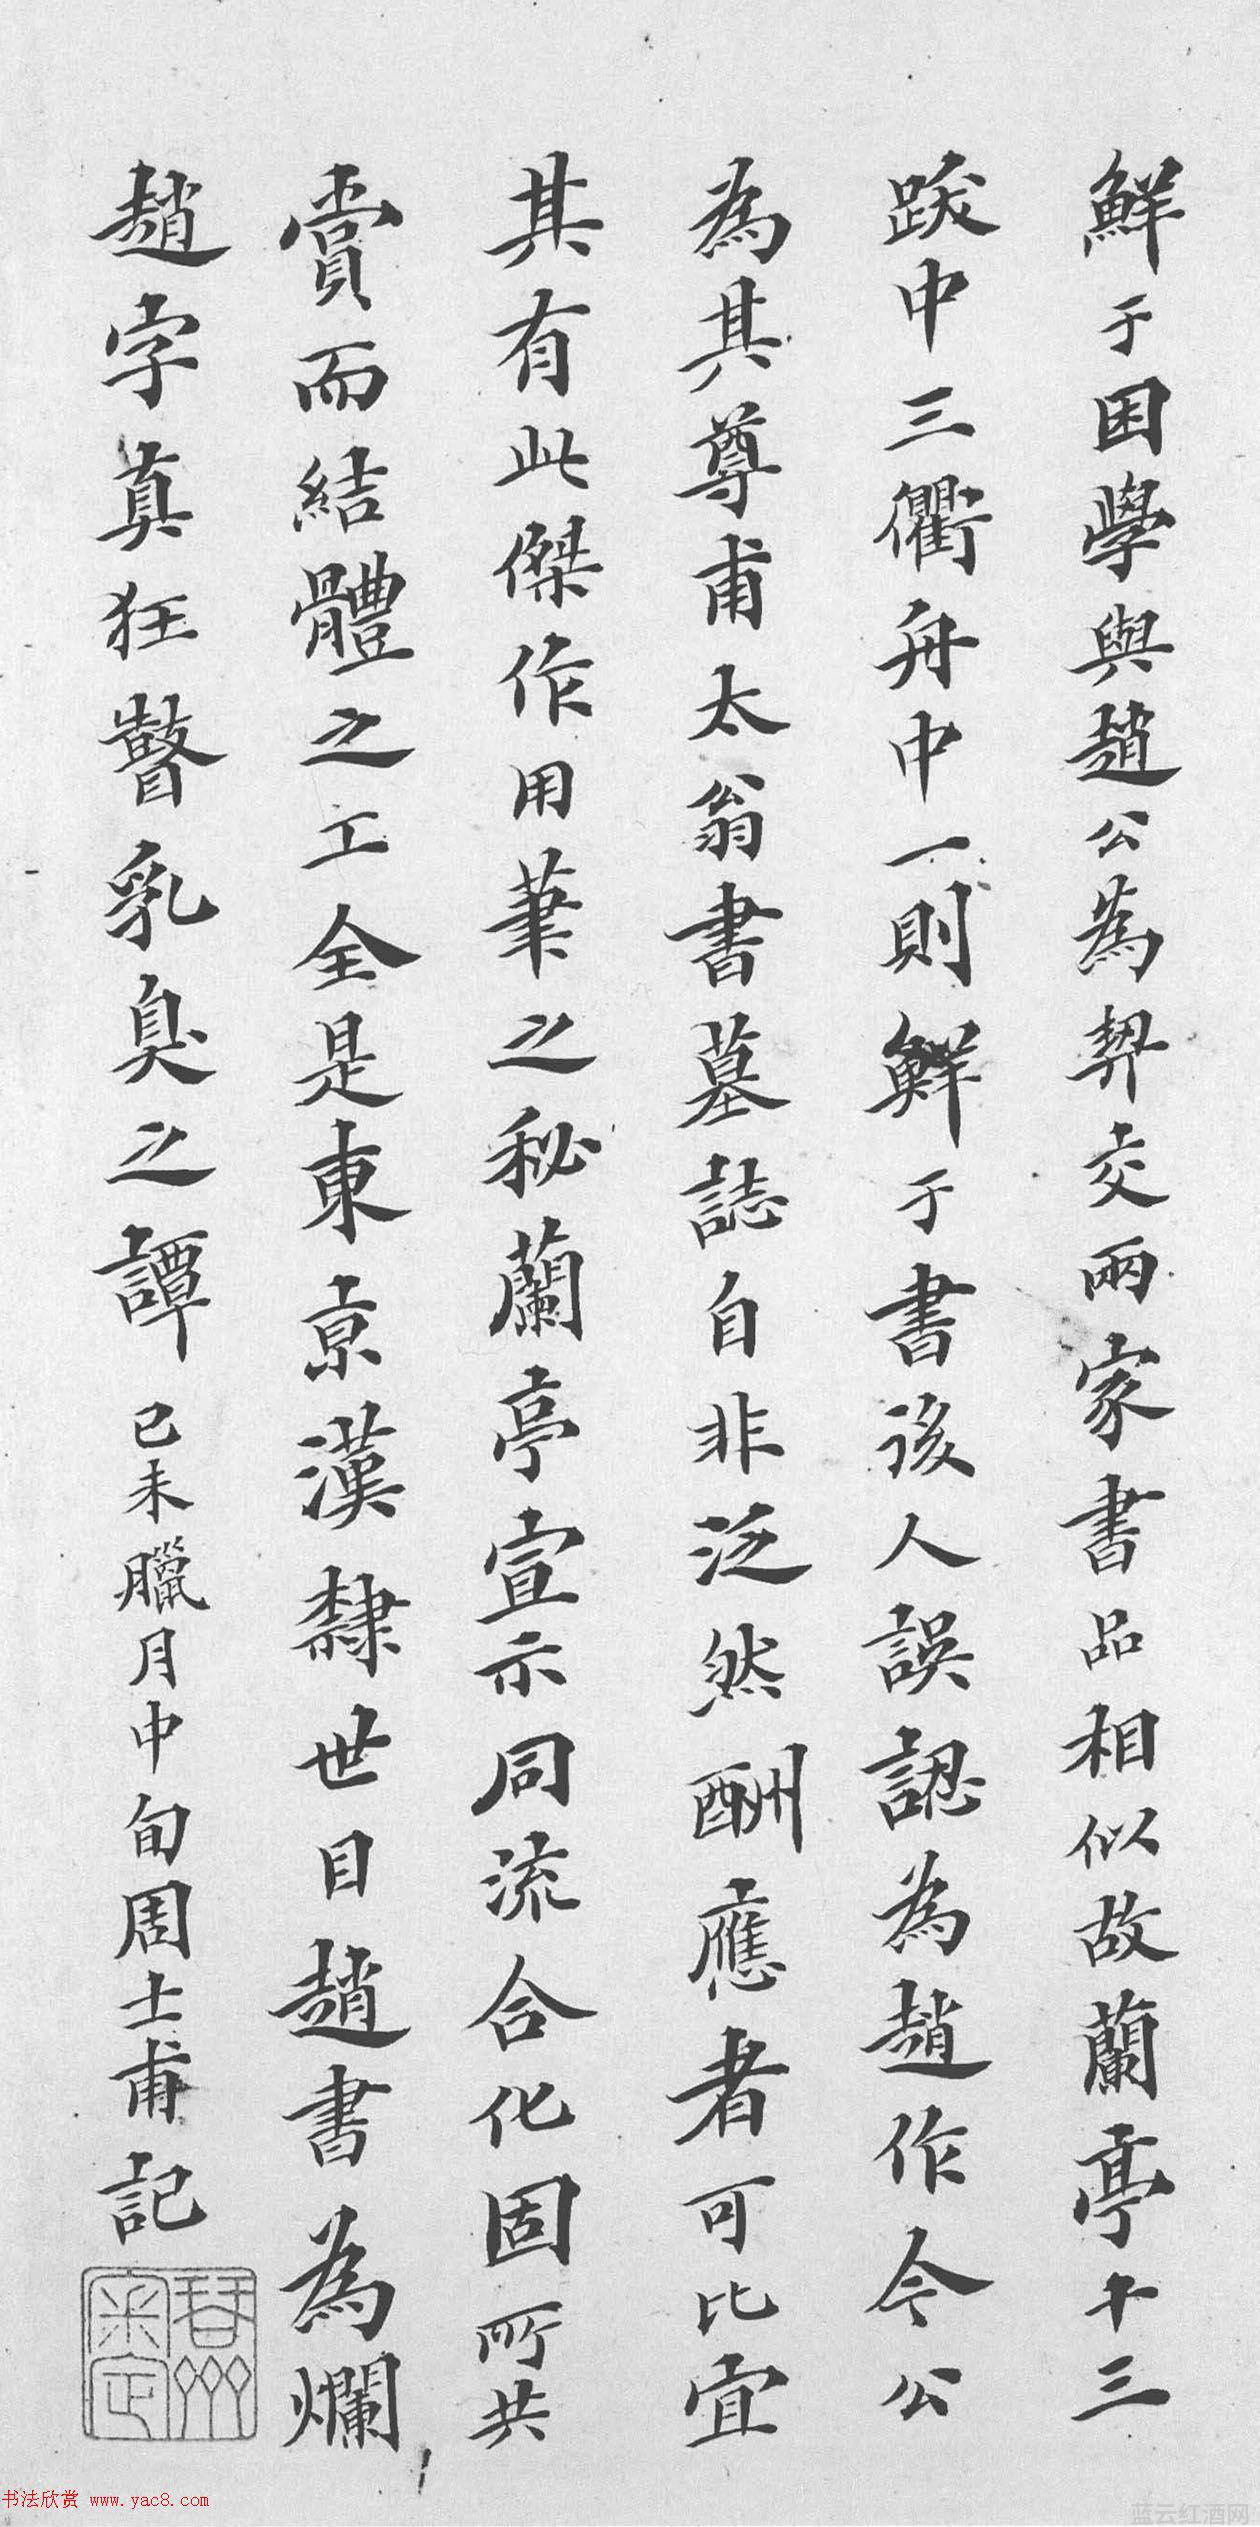 鮮于困學與趙公為契交兩家書品相似故蘭亭十三
跋中三衢舟中一則鮮于書後人誤認為趙作今公
為其尊甫太翁書墓誌自非泛然酬應者可比宜
其有此傑作用筆之秘蘭亭宣示同流合化固所共
賞而結體之工全是東京漢隸世目趙書為爛
趙字真狂瞽乳臭之譚 己未臘月中旬周士甫記
书法欣赏 www.yac8.com
蓝云红酒网